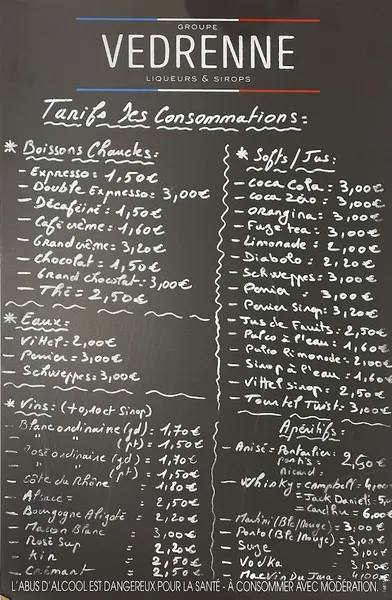 GROUPE
VEDRENNE
LIQUEURS & SIROPS
Tarifs Des Consommations:
* Boissons Chaudes:
- Expresso: 1,50€
- Double Expresso: 3,00€
- Décaféiné: 1,50€
- Café crème: 1,60€
- Grand crème: 3,20€
- Chocolat: 1,50€
- Grand chocolat: 3,00€
- Thé = 2,50€
* Eaux:
- Vittel: 2,00€
- Perrier = 3,00€
- Schweppes: 3,00€
* Vins: (+0,10ct Sirop)
- Blanc ordinaire (gd): 1,70€
" " (pt) = 1,50€
- Rosé ordinaire (gd): 1,70€
" " (pt) = 1,50€
- Côte du Rhône = 1,80€
- Alsace = 2,50€
- Bourgogne Aligoté = 2,20€
- Macon Blanc = 3,00€
- Rosé Sup = 2,20€
- Kir = 2,50€
- Crémant = 2,50€
* Softs / Jus:
- Coca Cola = 3,00€
- Coca Zéro = 3,00€
- Orangina: 3,00€
- Fuze tea: 3,00€
- Limonade = 2,00€
- Diabolo = 2,20€
- Schweppes = 3,00€
- Perrier = 3,00€
- Perrier Sirop: 3,20€
- Jus de Fruits: 2,50€
- Pulco à l'eau = 1,60€
- Pulco limonade = 2,00€
- Sirop à l'eau = 1,60€
- Vittel Sirop = 2,50€
- Tourtel Twist: 3,00€
Apéritifs:
- Anisé = Pontarlier 2,50€
pastis
Ricard
- Whisky = Campbell: 4,00
= Jack Daniels = 5,
= 6,00€
- Martini (Blc/Rouge) = 3,00€
- Porto (Blc/Rouge) = 3,00€
- Suze = 3,00€
- Vodka = 3,50€
- MacVin Du Jura = 4,00€
L'ABUS D'ALCOOL EST DANGEREUX POUR LA SANTÉ - À CONSOMMER AVEC MODÉRATION.